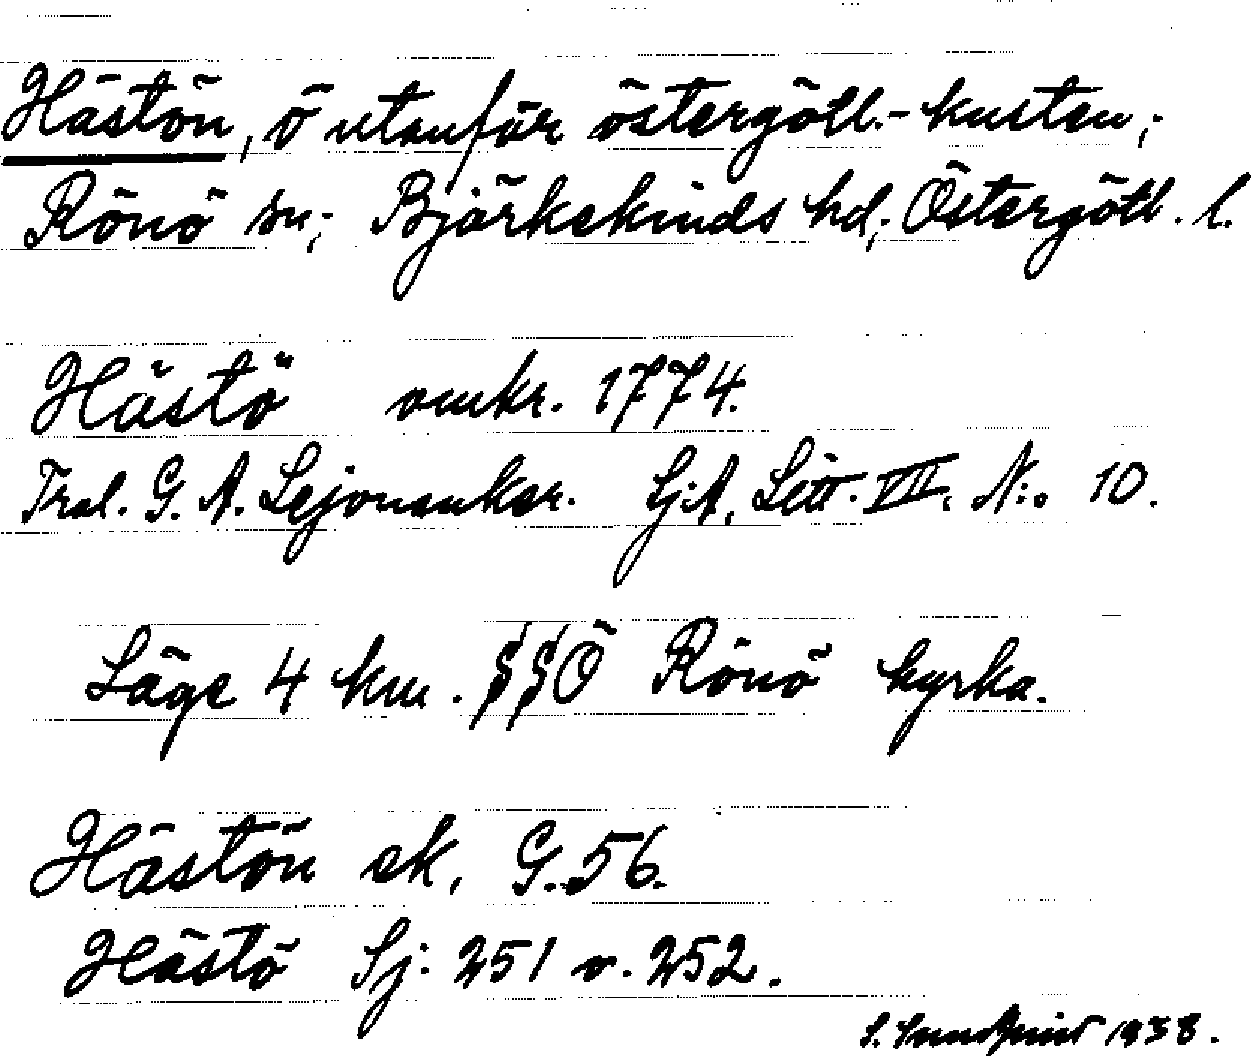 Hästön, ö utanför östergötl.-kusten,
Rönö sn; Björkekinds hd, Östergötl. l.
Hästö omkr. 1774.
Tral. G. A. Lejonanker. Sj:A, Litt. VII. N:o 10.
Läge 4 km. SSÖ Rönö kyrka.
Hästön ek, G. 56.
Hästö Sj: 251 o. 252.
S. 1938.